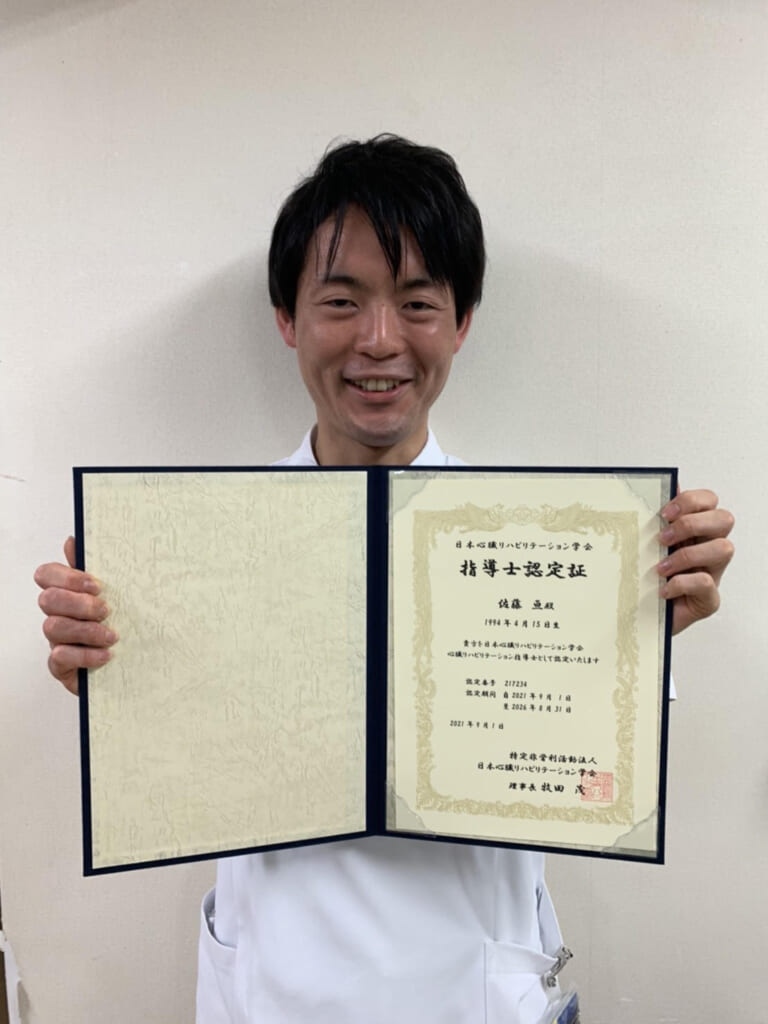 日本心臓リハビリテーション学会
指導士認定証
佐藤 亘殿
1994年4月15日生
貴方を日本心臓リハビリテーション学会
心臓リハビリテーション指導士として認定いたします
認定番号 217234
認定期間 自2021年9月 1日
至2026年8月31日
2021年9月1日
特定非営利活動法人
日本心臓リハビリテーション学会
理事長 牧田 茂